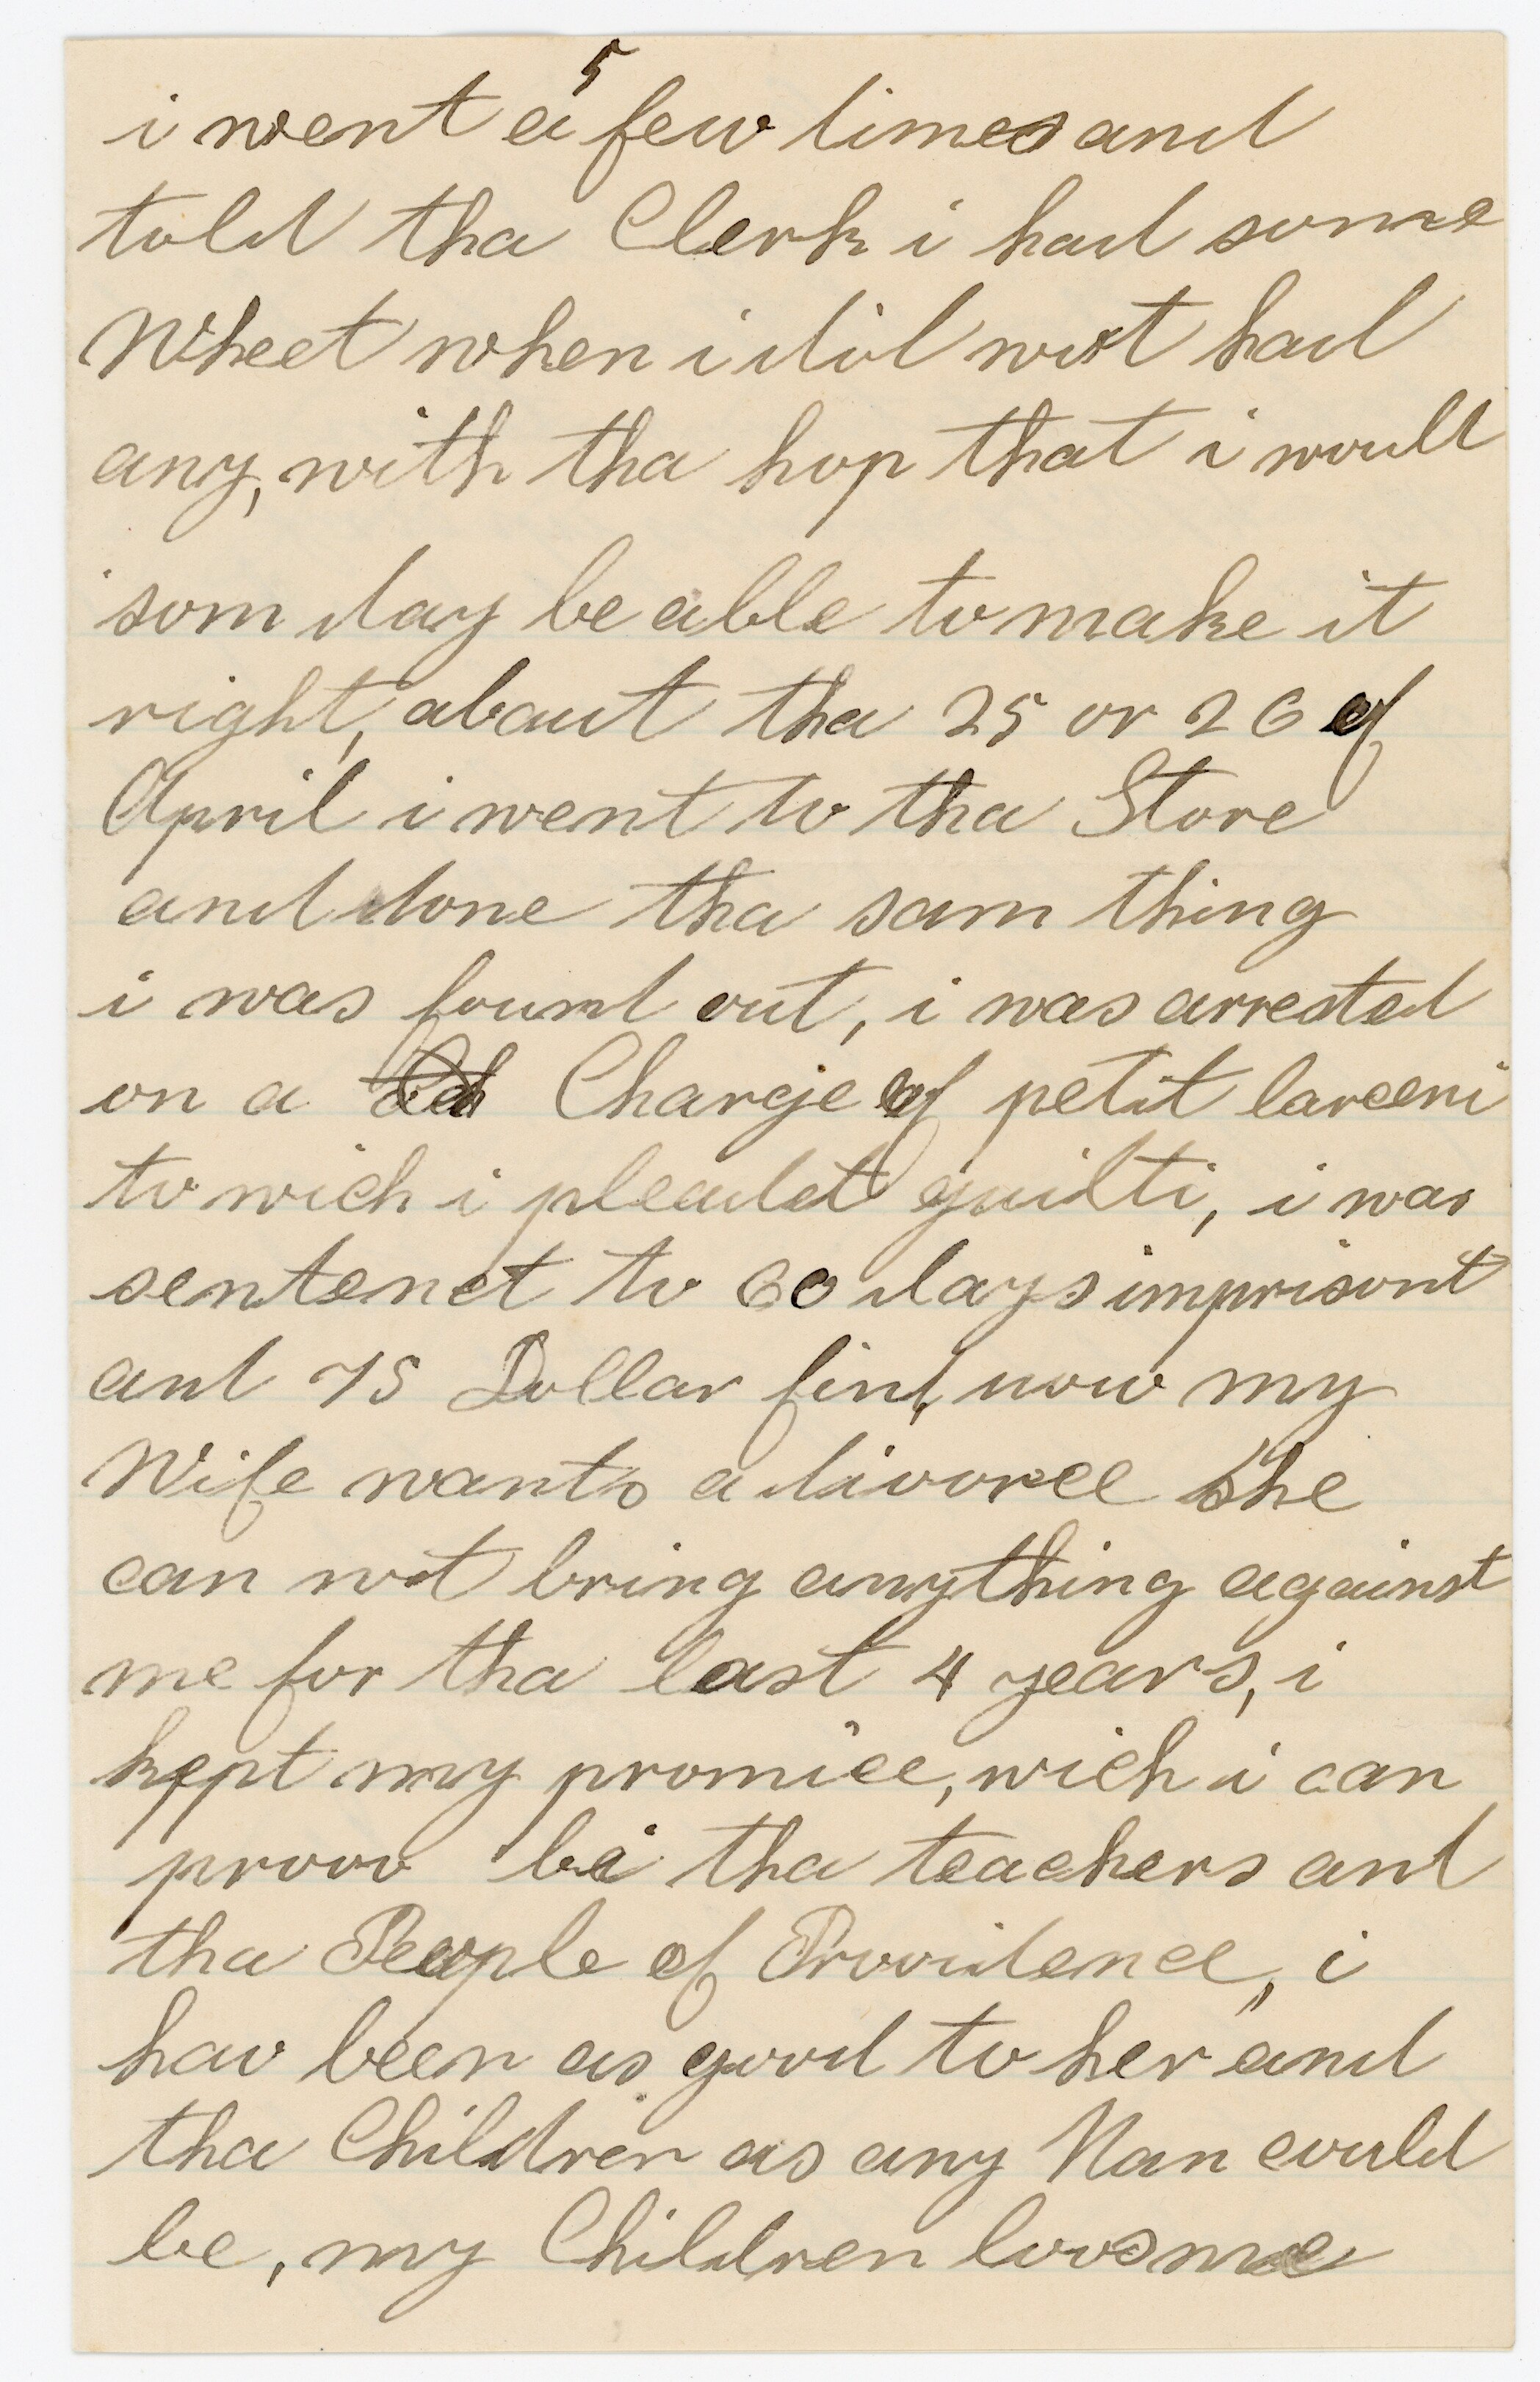 5
i went a few times and
told tha Clerk i had some
Wheet when i did not had
any, with tha hop that i would
som day be able to make it
right, about tha 25 or 26 of
April i went to tha Store
and done tha sam thing
i was found out, i was arrested
on a Charge of petit larceni
to wich i pleadet guilti, i was
sentenct to 60 days imprisont
and 75 Dollar find, now my
Wife wants a divorce she
can not bring anything against
me for tha last 4 years, i
kept my promice, wich i can
proov bi tha teachers and
tha People of Providence, i
hav been as good to her and
tha Children as any Man could
be, my Children lovs me